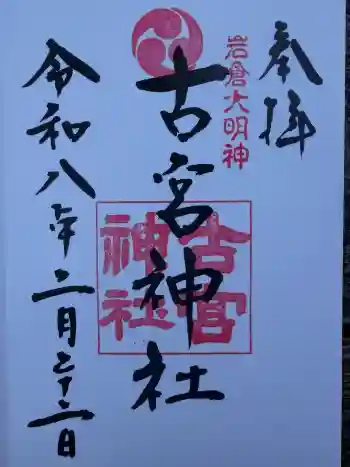 奉拝
岩倉大明神
古宮神社
古宮
神社
令和八年二月二十二日